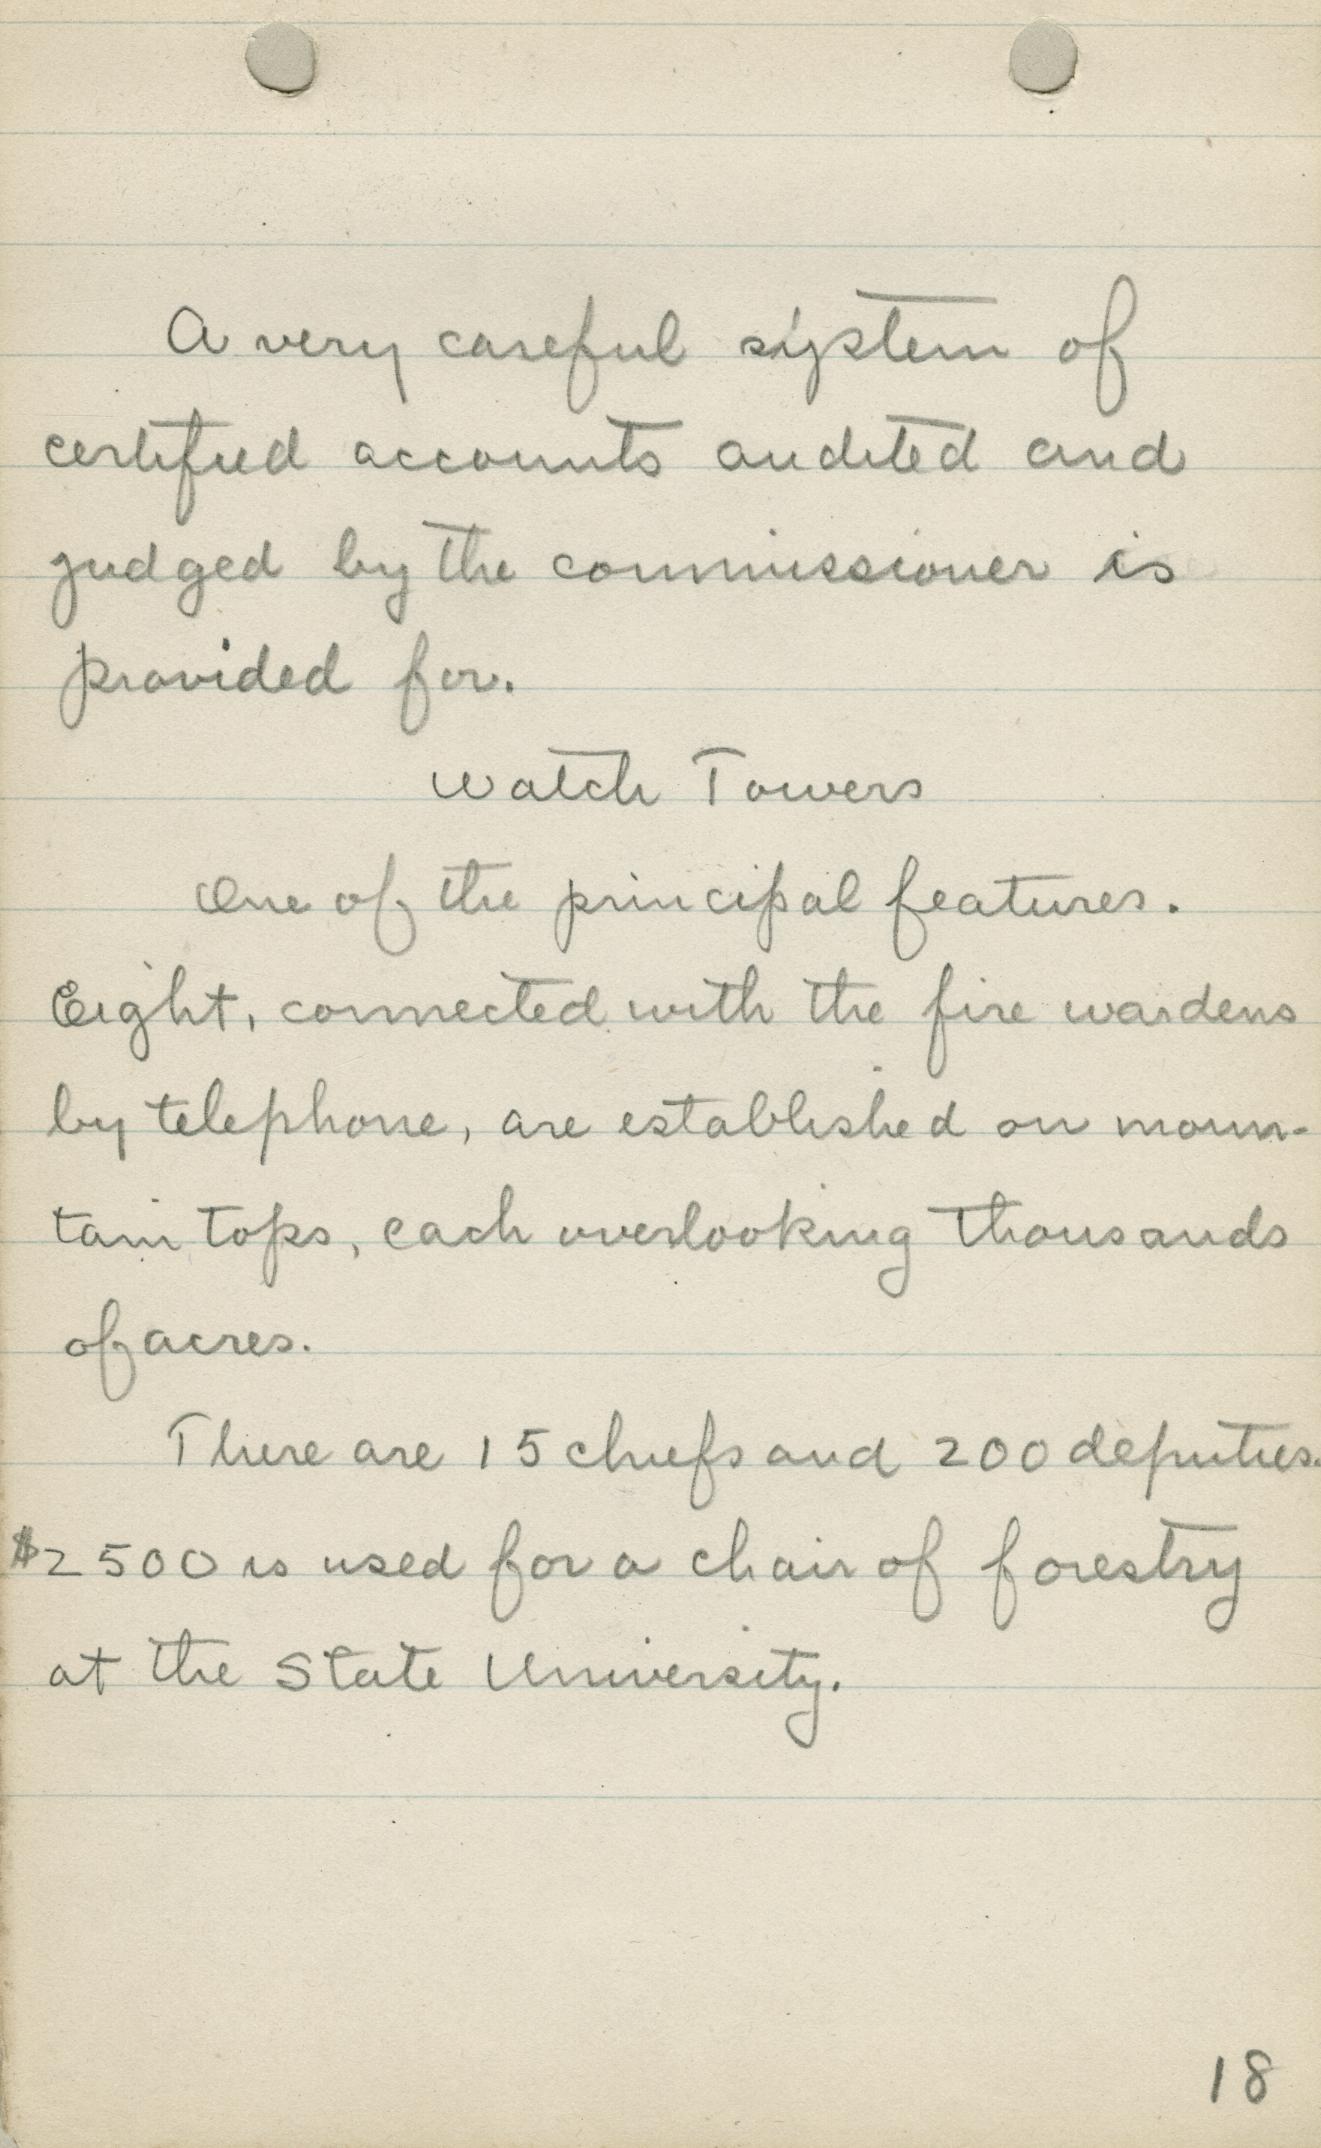 A very careful system of
certified accounts audited and
judged by the commissioner is
provided for.
Watch Towers
One of the principal features.
Eight, connected with the fire wardens
by telephone, are established on moun-
tain tops, each overlooking thousands
of acres.
There are 15 chiefs and 200 deputies.
$2500 is used for a chair of forestry
at the State University.
18